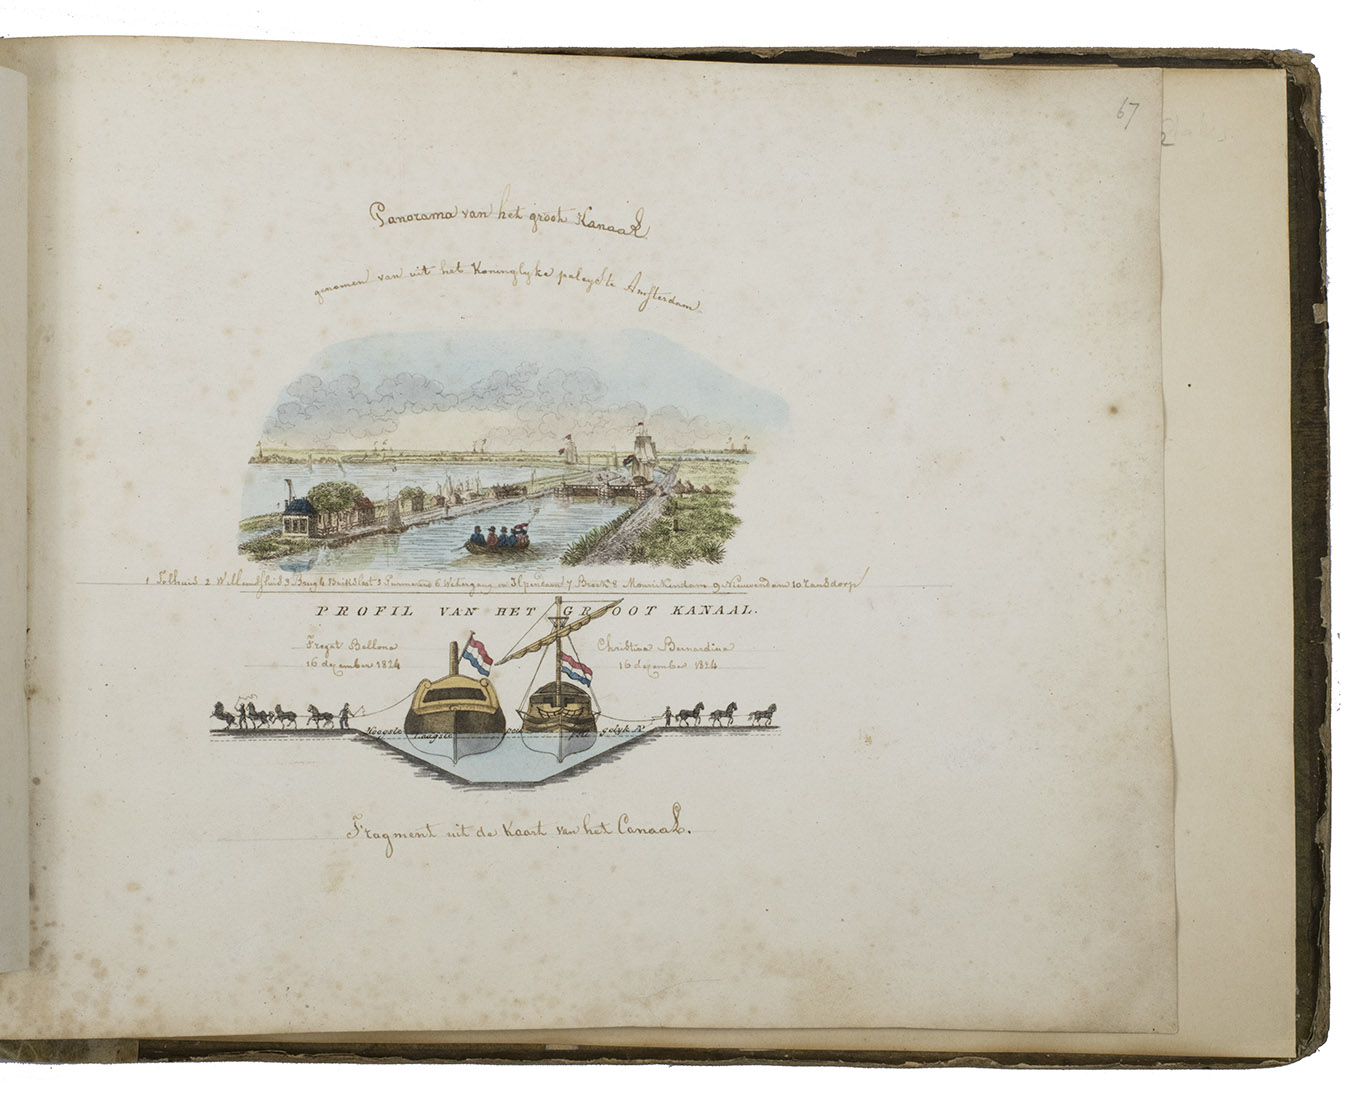 67
Panorama van het groot Kanaal
genomen van uit het Koninglyke paleys te Amsterdam.
1 Tolhuis 2 Willemssluis 3 Brug 4 Buiksloot 5 Purmerend 6 Watergang en Ilpendam 7 Broek 8 Monnikendam 9 Nieuwendam 10 Ransdorp
PROFIL VAN HET GROOT KANAAL.
Fregat Bellona
Christina Bernardina
16 december 1824
16 december 1824
Hoogste
Laagste
gelyk
Fragment uit de Kaart van het Canaal.